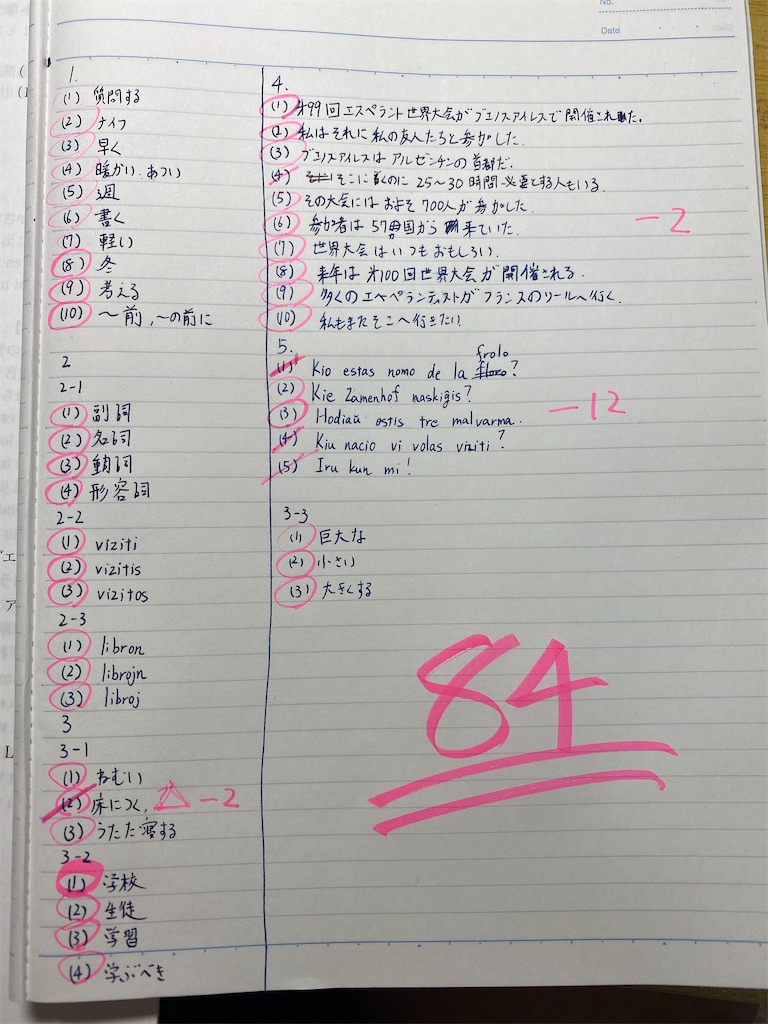 No.
Date
1.
(1) 質問する
(2) ナイフ
(3) 早く
(4) 暖かい、あつい
(5) 週
(6) 書く
(7) 軽い
(8) 冬
(9) 考える
(10) 〜前，〜の前に
2
2-1
(1) 副詞
(2) 名詞
(3) 動詞
(4) 形容詞
2-2
(1) viziti
(2) vizitis
(3) vizitos
2-3
(1) libron
(2) librojn
(3) libroj
3
3-1
(1) ねむい
(2) 床につく, △ -2
(3) うたた寝する
3-2
(1) 学校
(2) 生徒
(3) 学習
(4) 学ぶべき
4.
(1) 第99回エスペラント世界大会がブエノスアイレスで開催された。
(2) 私はそれに私の友人たちと参加した.
(3) ブエノスアイレスはアルゼンチンの首都だ.
(4) そこに着くのに 25〜30時間必要とする人もいる.
(5) その大会にはおよそ700人が参加した
(6) 参加者は57カ国から来ていた.
(7) 世界大会はいつもおもしろい.
(8) 来年は第100回世界大会が開催される.
(9) 多くのエスペランティストがフランスのリールへ行く.
(10) 私もまたそこへ行きたい
-2
5.
(1) Kio estas nomo de la frolo?
(2) Kie Zamenhof naskiĝis?
(3) Hodiaŭ estis tre malvarma.
(4) Kiu nacio vi volas viziti?
(5) Iru kun mi!
-12
3-3
(1) 巨大な
(2) 小さい
(3) 大きくする
84